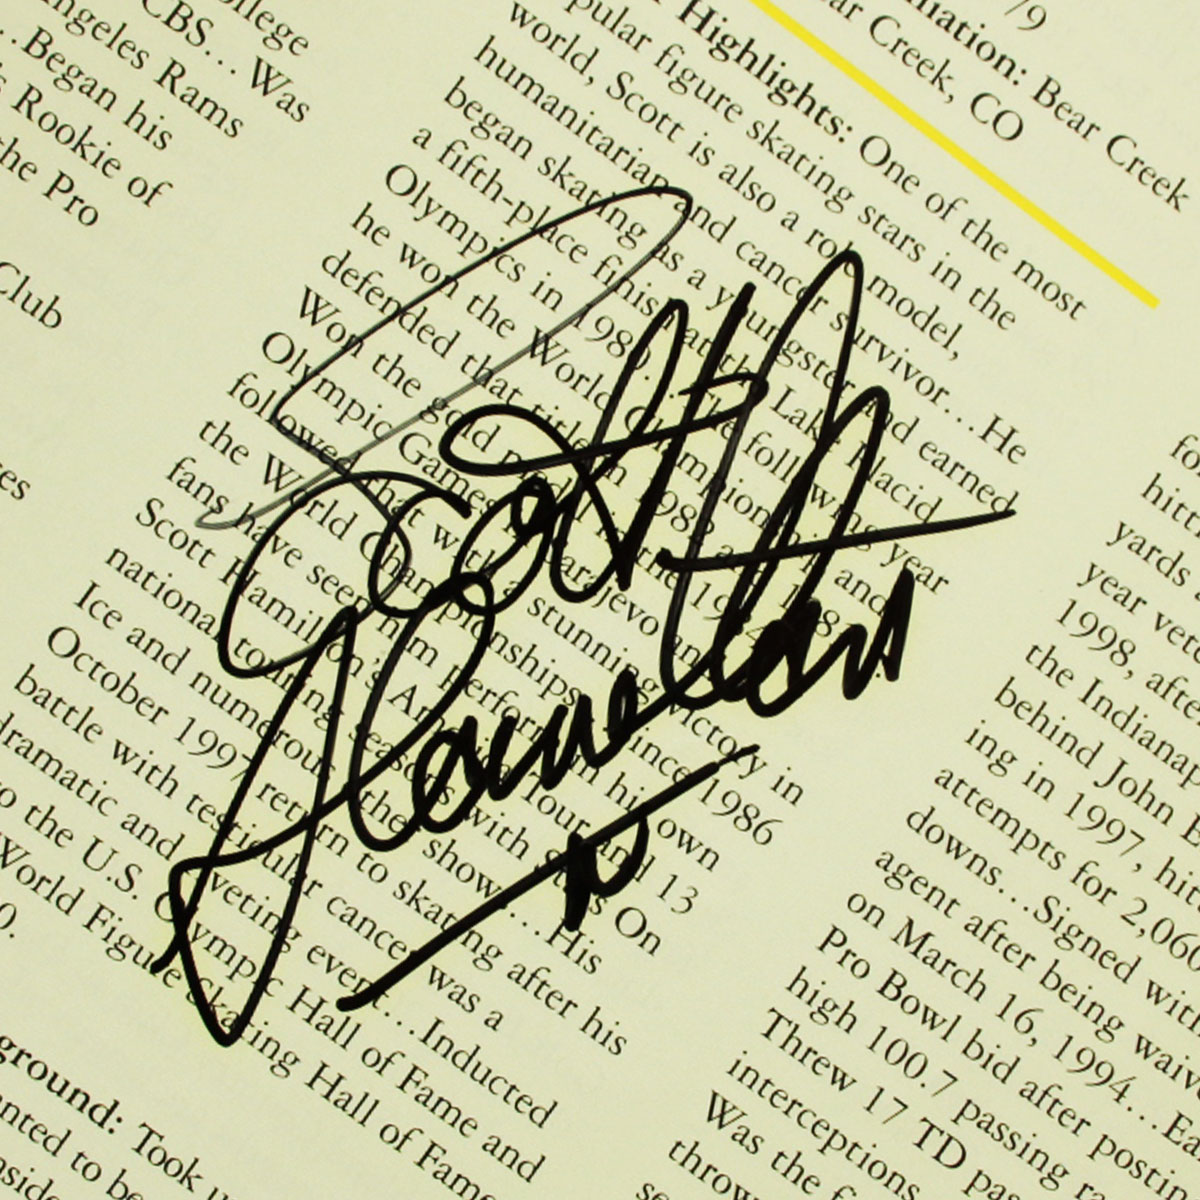 ollege
CBS… Was
ngeles Rams
…Began his
s Rookie of
the Pro
Club
/9
mation: Bear Creek
ar Creek, CO
Highlights: One of the most
pular figure skating stars in the
world, Scott is also a role model,
humanitarian and cancer survivor…He
began skating as a youngster and earned
a fifth-place finish at the Lake Placid
Olympics in 1980. The following year
he won the World Championship and
defended that title in 1982 and
Won the gold medal in the 1984
Olympic Games in Sarajevo and
followed that with a stunning victory in
the World Championships. Since 1986
fans have seen him perform in his own
Scott Hamilton's American Tour and 13
national touring seasons with Stars On
Ice and numerous other shows…His
October 1997 return to skating after his
battle with testicular cancer was a
dramatic and riveting event…Inducted
to the U.S. Olympic Hall of Fame and
World Figure Skating Hall of Fame
0.
ground: Took
anted to be
Scott
Hamilton
hitt
yards
year vete
1998, afte
the Indianap
behind John E
ing in 1997, hit
attempts for 2,060
downs…Signed with
agent after being waiv
on March 16, 1994…Ea
Pro Bowl bid after postin
high 100.7 passing ra
Threw 17 TD pas
interceptions
Was the f
throw